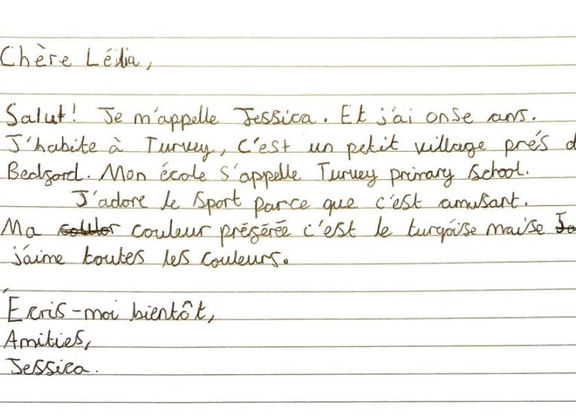 Chère Lélia,
Salut! Je m'appelle Jessica. Et j'ai onse ans.
J'habite à Turvey, C'est un petit village prés d
Bedford. Mon école S'appelle Turvey primary School.
J'adore le Sport parce que c'est amusant.
Ma couleur préférée c'est le turqóise maise
j'aime toutes les couleurs.
Écris-moi bientôt,
Amities,
Jessica.